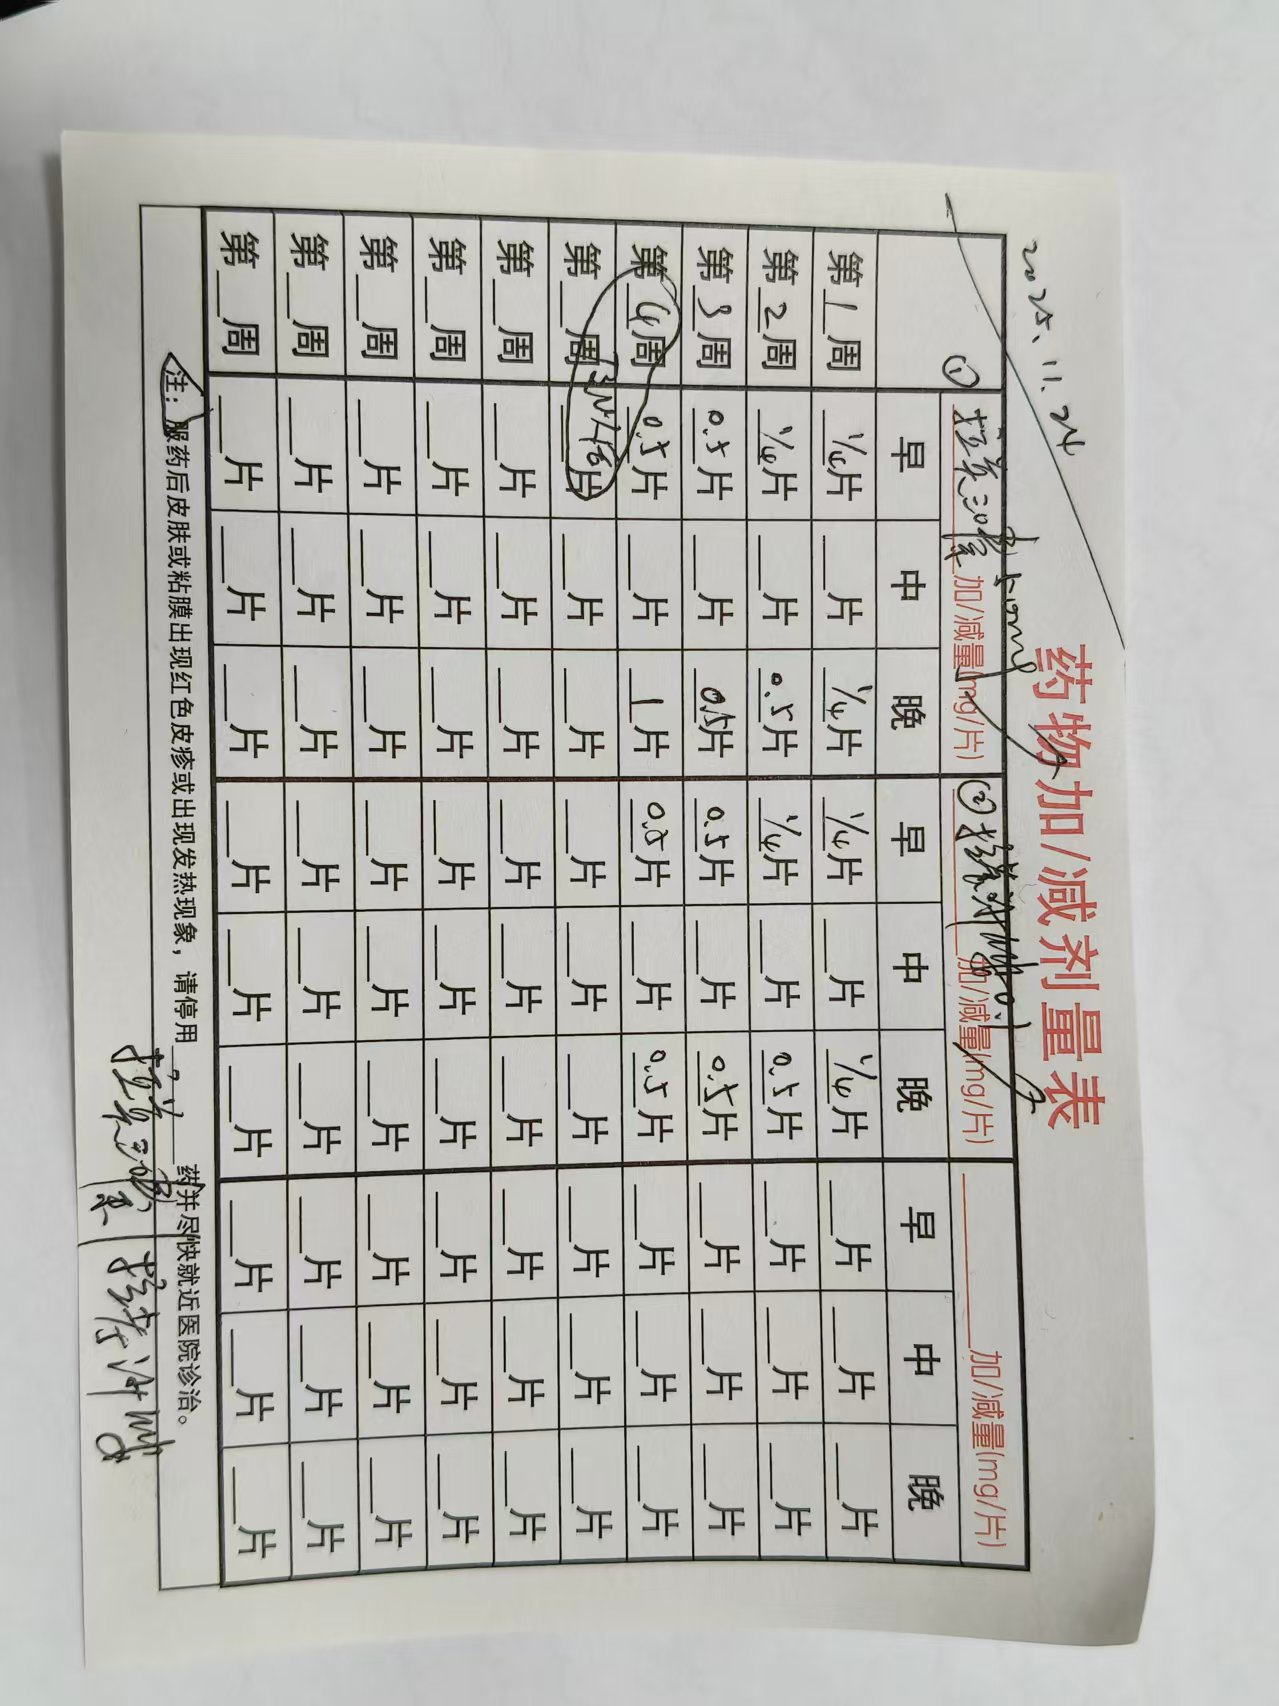 2025.11.24
药物加/减剂量表
① 拉莫三嗪 50mg 加/减量(mg/片) ② 加/减量(mg/片) 加/减量(mg/片)
早 中 晚 早 中 晚 早 中 晚
第1周 1/4片 片 1/4片 1/4片 片 1/4片 片 片 片
第2周 1/4片 片 0.5片 1/4片 片 0.5片 片 片 片
第3周 0.5片 片 0.5片 0.5片 片 0.5片 片 片 片
第4周 0.5片 片 1片 0.5片 片 0.5片 片 片 片
第 周 片 片 片 片 片 片 片 片 片
第 周 片 片 片 片 片 片 片 片 片
第 周 片 片 片 片 片 片 片 片 片
第 周 片 片 片 片 片 片 片 片 片
第 周 片 片 片 片 片 片 片 片 片
第 周 片 片 片 片 片 片 片 片 片
注：服药后皮肤或粘膜出现红色皮疹或出现发热现象，请停用 药并尽快就近医院诊治。
拉莫三嗪